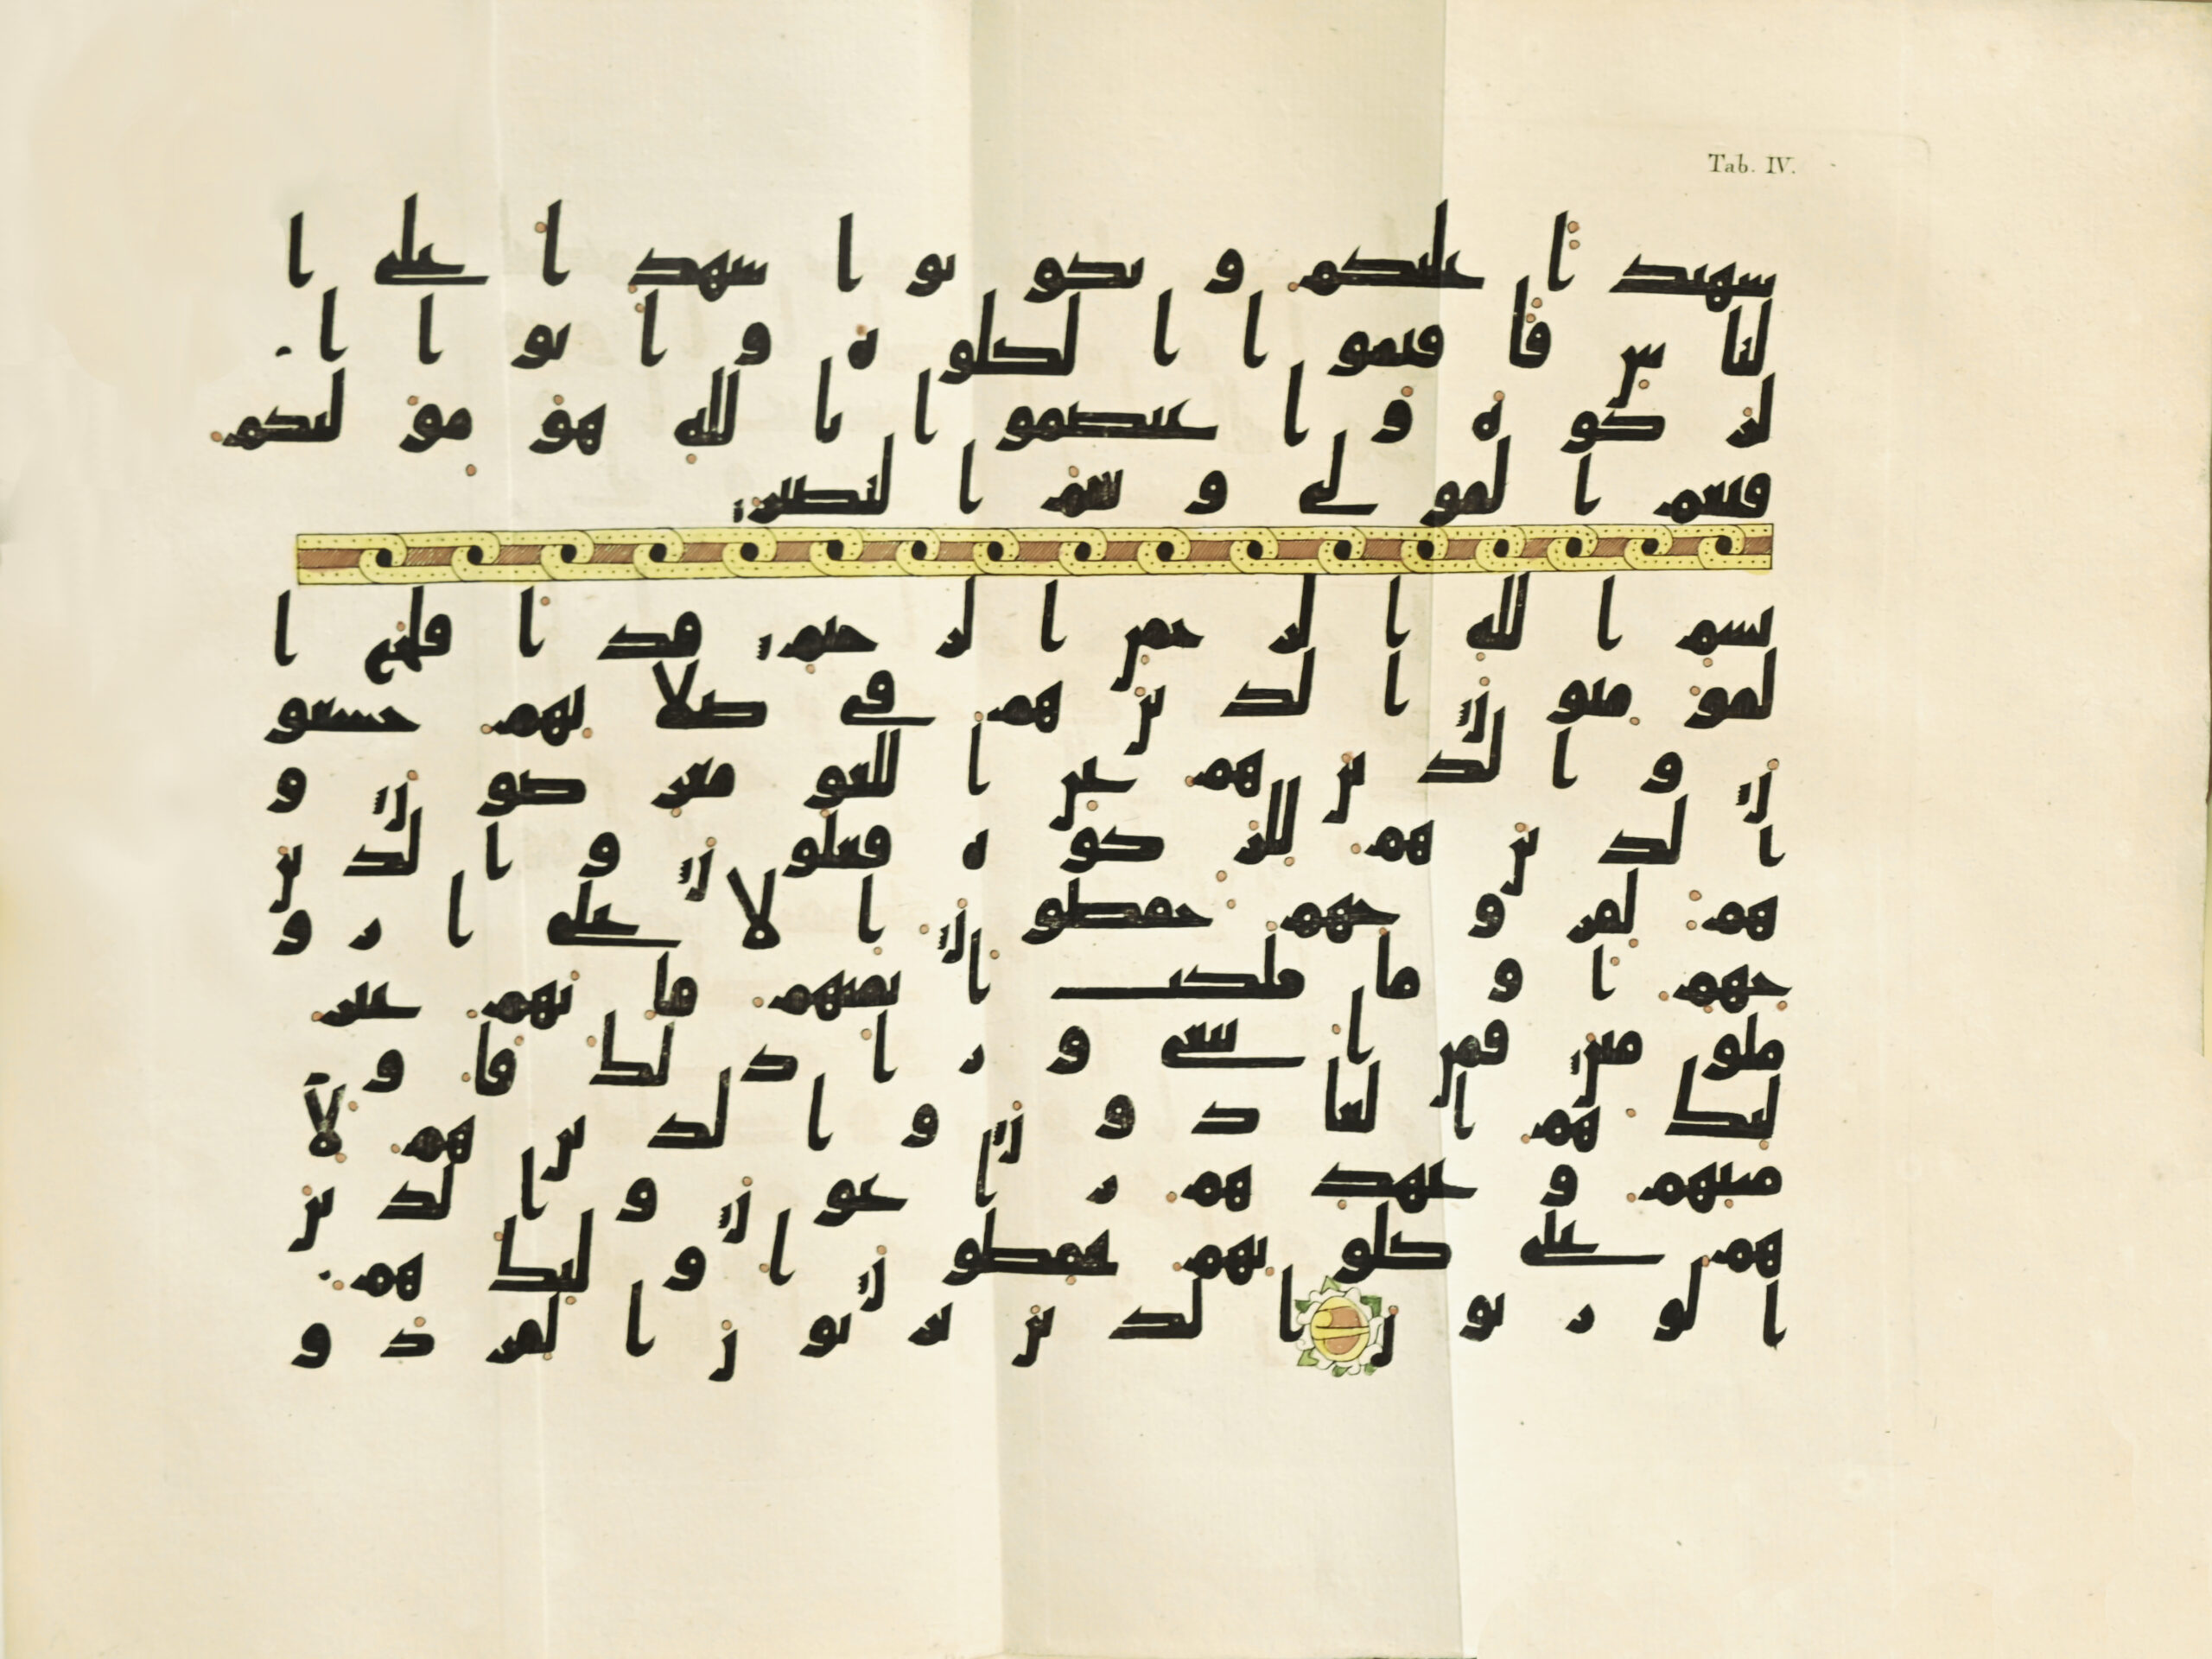 Tab. IV.
شهيدا عليكم وتكونوا شهدا على ا
لناس فاقيموا الصلوة واتوا ا
لزكوة واعتصموا بالله هو موليكم
فنعم المولى ونعم النصير
بسم الله الرحمن الرحيم قد افلح ا
لمومنون الذين هم في صلاتهم خشعو
ن والذين هم عن اللغو معرضون و
الذين هم للزكوة فعلون والذين
هم لفروجهم حفظون الا على ازو
جهم او ما ملكت ايمنهم فانهم غير
ملومين فمن ابتغى ورا ذلك فاو
ليك هم العادون والذين هم لا
منتهم وعهدهم راعون والذين
هم على صلوتهم يحفظون اوليك هم
الورثون الذين يرثون الفردو